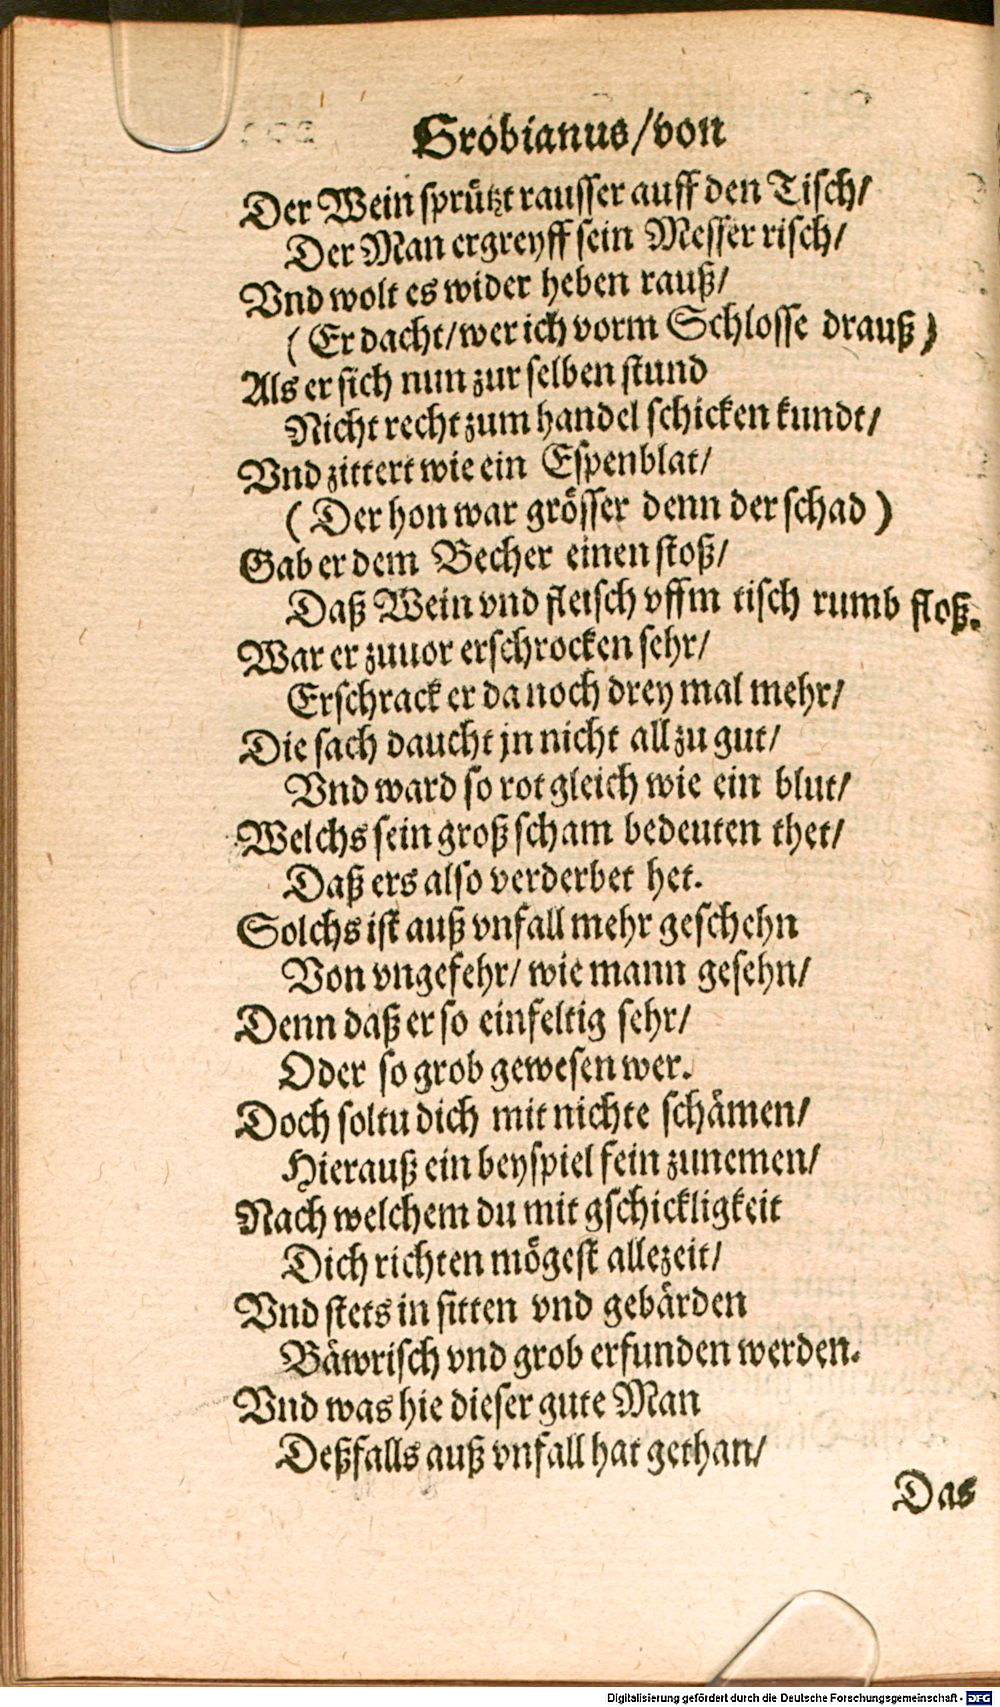 Grobianus/von
Der Wein sprützt rausser auff den Tisch/
Der Man ergreyff sein Messer risch/
Vnd wolt es wider heben rauß/
(Er dacht/wer ich vorm Schlosse drauß)
Als er sich nun zur selben stund
Nicht recht zum handel schicken kundt/
Vnd zittert wie ein Espenblat/
(Der hon war grösser denn der schad)
Gab er dem Becher einen stoß/
Daß Wein vnd fleisch vffm tisch rumb floß.
War er zuuor erschrocken sehr/
Erschrack er da noch drey mal mehr/
Die sach daucht jn nicht all zu gut/
Vnd ward so rot gleich wie ein blut/
Welchs sein groß scham bedeuten thet/
Daß ers also verderbet het.
Solchs ist auß vnfall mehr geschehn
Von vngefehr/ wie mann gesehn/
Denn daß er so einfeltig sehr/
Oder so grob gewesen wer.
Doch soltu dich mit nichte schämen/
Hierauß ein beyspiel fein zunemen/
Nach welchem du mit gschickligkeit
Dich richten mögest allezeit/
Vnd stets in sitten vnd gebärden
Bäwrisch vnd grob erfunden werden.
Vnd was hie dieser gute Man
Deßfalls auß vnfall hat gethan/
Das
Digitalisierung gefördert durch die Deutsche Forschungsgemeinschaft - DFG